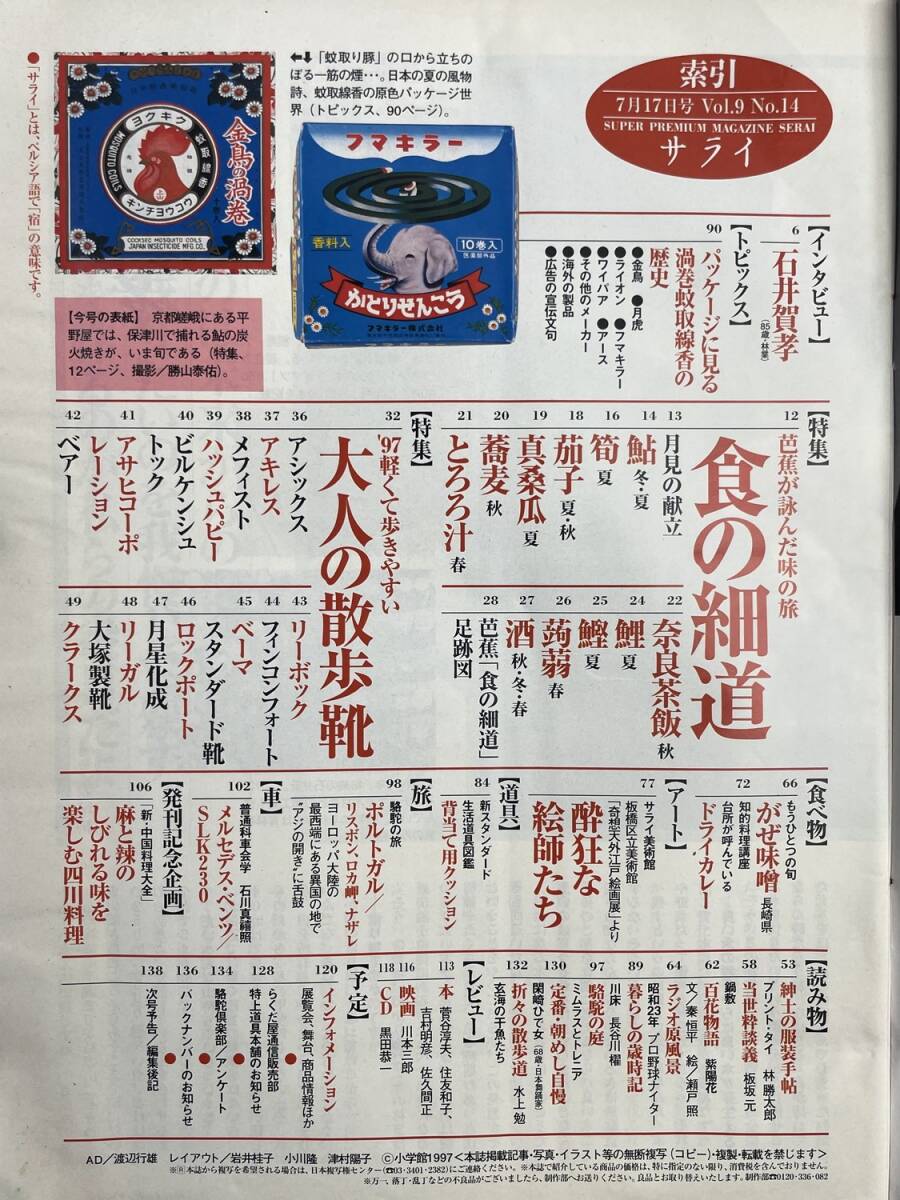 索引
7月17日号 Vol.9 No.14
SUPER PREMIUM MAGAZINE SERAI
サライ
●「サライ」とは、ペルシア語で「宿」の意味です。
ヨクキク
MOSQUITO COILS
キンチヨウコウ
金鳥の渦巻
COCKSEC MOSQUITO COILS
JAPAN INSECTICIDE MFG.CO.
←↓「蚊取り豚」の口から立ちの
ぼる一筋の煙…。日本の夏の風物
詩、蚊取線香の原色パッケージ世
界（トピックス、90ページ）。
フマキラー
香料入
10巻入
医薬部外品
かとりせんこう
フマキラー株式会社
【今号の表紙】 京都嵯峨にある平
野屋では、保津川で捕れる鮎の炭
火焼きが、いま旬である（特集、
12ページ、撮影／勝山泰佑）。
【インタビュー】
6
石井賀孝
（85歳・林業）
【トピックス】
90
パッケージに見る
渦巻蚊取線香の
歴史
●金鳥 ●月虎
●ライオン ●フマキラー
●ワイパア ●アース
●その他のメーカー
●海外の製品
●広告の宣伝文句
【特集】
12
芭蕉が詠んだ味の旅
食の細道
13
月見の献立
14
鮎 冬・夏
16
筍 夏
18
茄子 夏・秋
19
真桑瓜 夏
20
蕎麦 秋
21
とろろ汁 春
22
奈良茶飯 秋
24
鯉 夏
25
鰹 夏
26
蒟蒻 春
27
酒 秋・冬・春
28
芭蕉「食の細道」
足跡図
【特集】
32
'97軽くて歩きやすい
大人の散歩靴
36
アシックス
37
アキレス
38
メフィスト
39
ハッシュパピー
40
ビルケンシュ
トック
41
アサヒコーポ
レーション
42
ベアー
43
リーボック
44
フィンコンフォート
45
ベーマ
スタンダード靴
46
ロックポート
47
月星化成
48
リーガル
大塚製靴
49
クラークス
【食べ物】
66
もうひとつの旬
がぜ味噌 長崎県
72
知的料理講座
台所が呼んでいる
ドライカレー
【アート】
77
サライ美術館
板橋区立美術館
「奇想天外江戸絵画展」より
酔狂な
絵師たち
【道具】
84
新スタンダード
生活道具図鑑
背当て用クッション
【旅】
98
駱駝の旅
ポルトガル／
リスボン、ロカ岬、ナザレ
ヨーロッパ大陸の
最西端にある異国の地で
“アジの開き”に舌鼓
【車】
102
普通科車会学 石川真禧照
メルセデス・ベンツ／
SLK230
【発刊記念企画】
106
「新・中国料理大全」
麻と辣の
しびれる味を
楽しむ四川料理
【読み物】
53
紳士の服装手帖
プリント・タイ 林 勝太郎
58
当世粋談義 板坂 元
鍋敷
62
百花物語 紫陽花
文／秦 恒平 絵／瀬戸 照
64
ラジオ原風景
昭和23年 プロ野球ナイター
89
暮らしの歳時記
川床 長谷川 櫂
97
駱駝の庭
ミムラストレニア
130
定番・朝めし自慢
関崎ひで女（68歳・日本舞踊家）
132
折々の散歩道 水上 勉
玄海の干魚たち
【レビュー】
113
本 菅谷淳夫、住友和子、
吉村明彦、佐久間正
116
映画 川本三郎
118
CD 黒田恭一
【予定】
120
インフォメーション
展覧会、舞台、商品情報ほか
128
●らくだ屋通信販売部
特上道具本舗のお知らせ
134
●駱駝倶楽部／アンケート
136
●バックナンバーのお知らせ
138
●次号予告／編集後記
AD／渡辺行雄 レイアウト／岩井桂子 小川隆 津村陽子 ©小学館1997＜本誌掲載記事・写真・イラスト等の無断複写（コピー）・複製・転載を禁じます＞
※Ⓡ本誌から複写を希望される場合は、日本複写権センター（☎03・3401・2382）にご連絡ください。※本誌で紹介している商品の価格は、特に指定のない限り、消費税を含んでおりません。
※万一、落丁・乱丁などの不良品がございましたら、制作部へお送りください。良品とお取り替えいたします。制作部☎0120・336・082